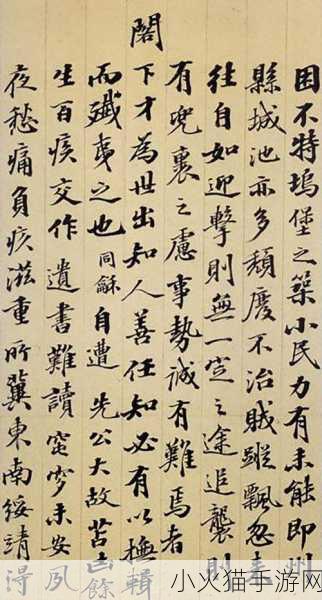 困不特塢堡之築小民力有未能即州
縣城池亦多頹廢不治賊蹤飄忽去
往自如迎擊則無一定之途追襲則
有兜裹之慮事勢誠有難焉者
閣下才為世出知人善任知必有以撫輯
而殲夷之也同龢自遭先公大故苫凷餘
生百疾交作遺書難讀窀穸未安夙
夜愁痛負疚滋重所冀東南綏靖得
小火猫手游网